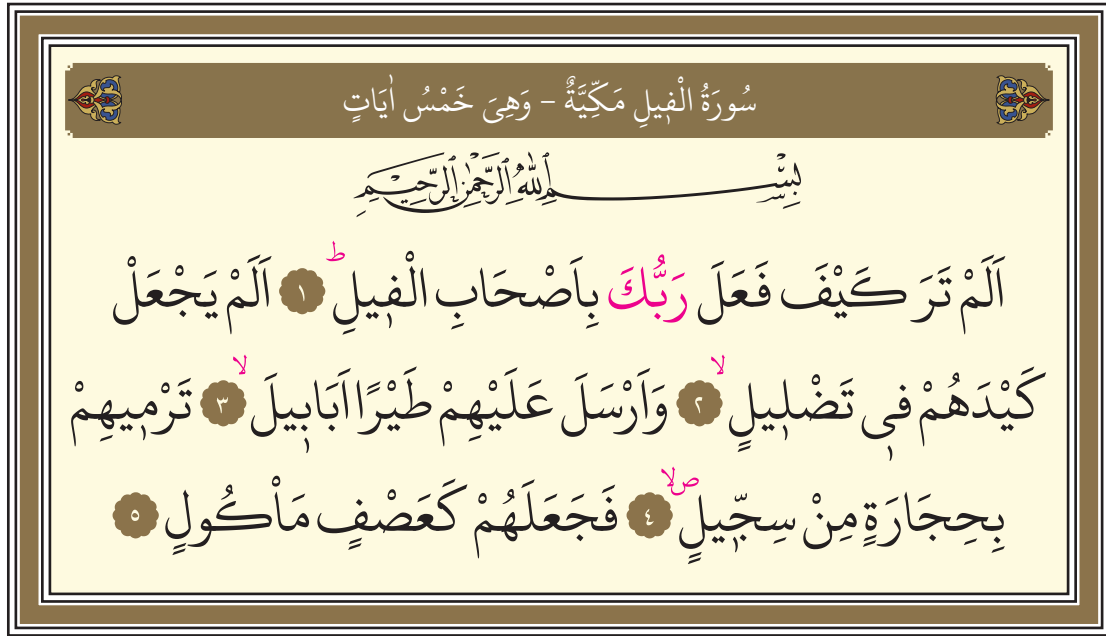 سُورَةُ الْفٖيلِ مَكِّيَّةٌ – وَهِىَ خَمْسُ اٰيَاتٍ
بِسْمِ اللّٰهِ الرَّحْمٰنِ الرَّحٖيمِ
اَلَمْ تَرَ كَيْفَ فَعَلَ رَبُّكَ بِاَصْحَابِ الْفٖيلِؕ ﴿١﴾ اَلَمْ يَجْعَلْ
كَيْدَهُمْ فٖى تَضْلٖيلٍۙ ﴿٢﴾ وَاَرْسَلَ عَلَيْهِمْ طَيْرًا اَبَابٖيلَۙ ﴿٣﴾ تَرْمٖيهِمْ
بِحِجَارَةٍ مِنْ سِجّٖيلٍ صلا ﴿٤﴾ فَجَعَلَهُمْ كَعَصْفٍ مَاْكُولٍ ﴿٥﴾